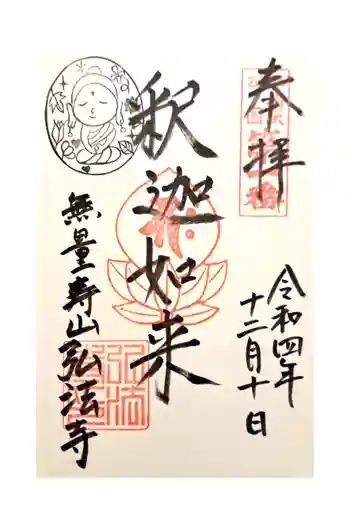 奉拝
令和四年
十二月十日
釈迦如来
無量寿山弘法寺